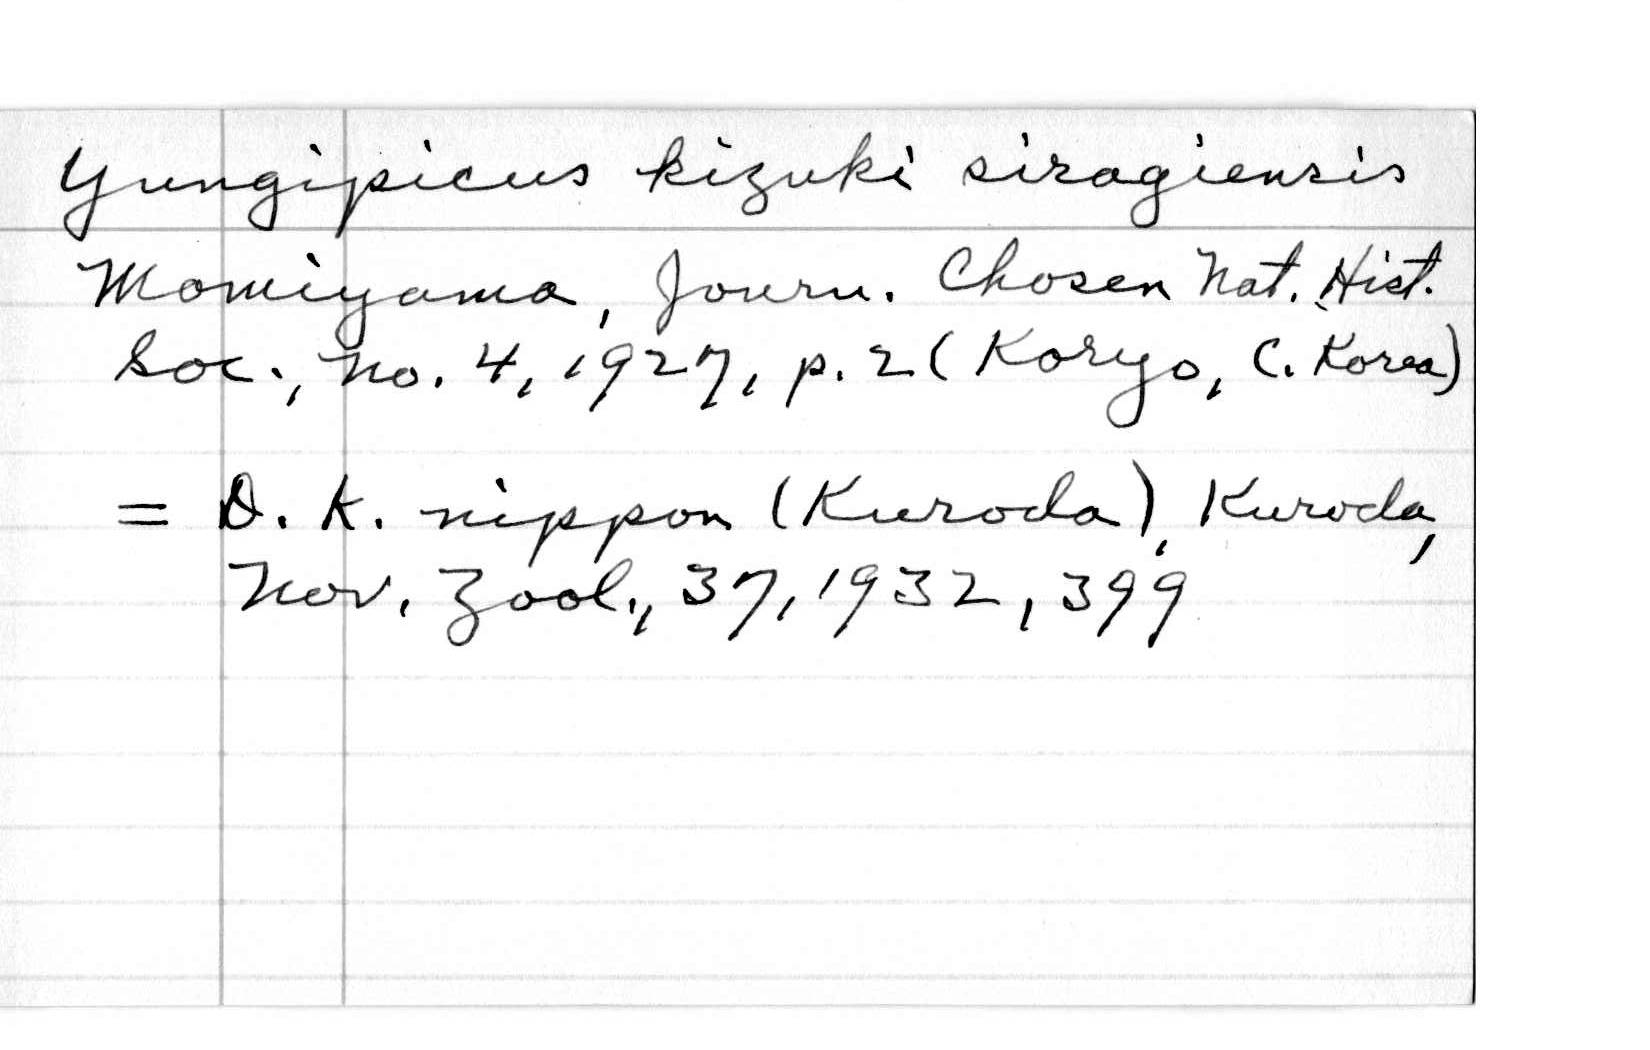 Yungipicus kizuki siragiensis
Momiyama, Journ. Chosen Nat. Hist.
Soc., no. 4, 1927, p. 2 (Koryo, C. Korea)
= D. k. nippon (Kuroda), Kuroda,
Nov. Zool., 37, 1932, 399